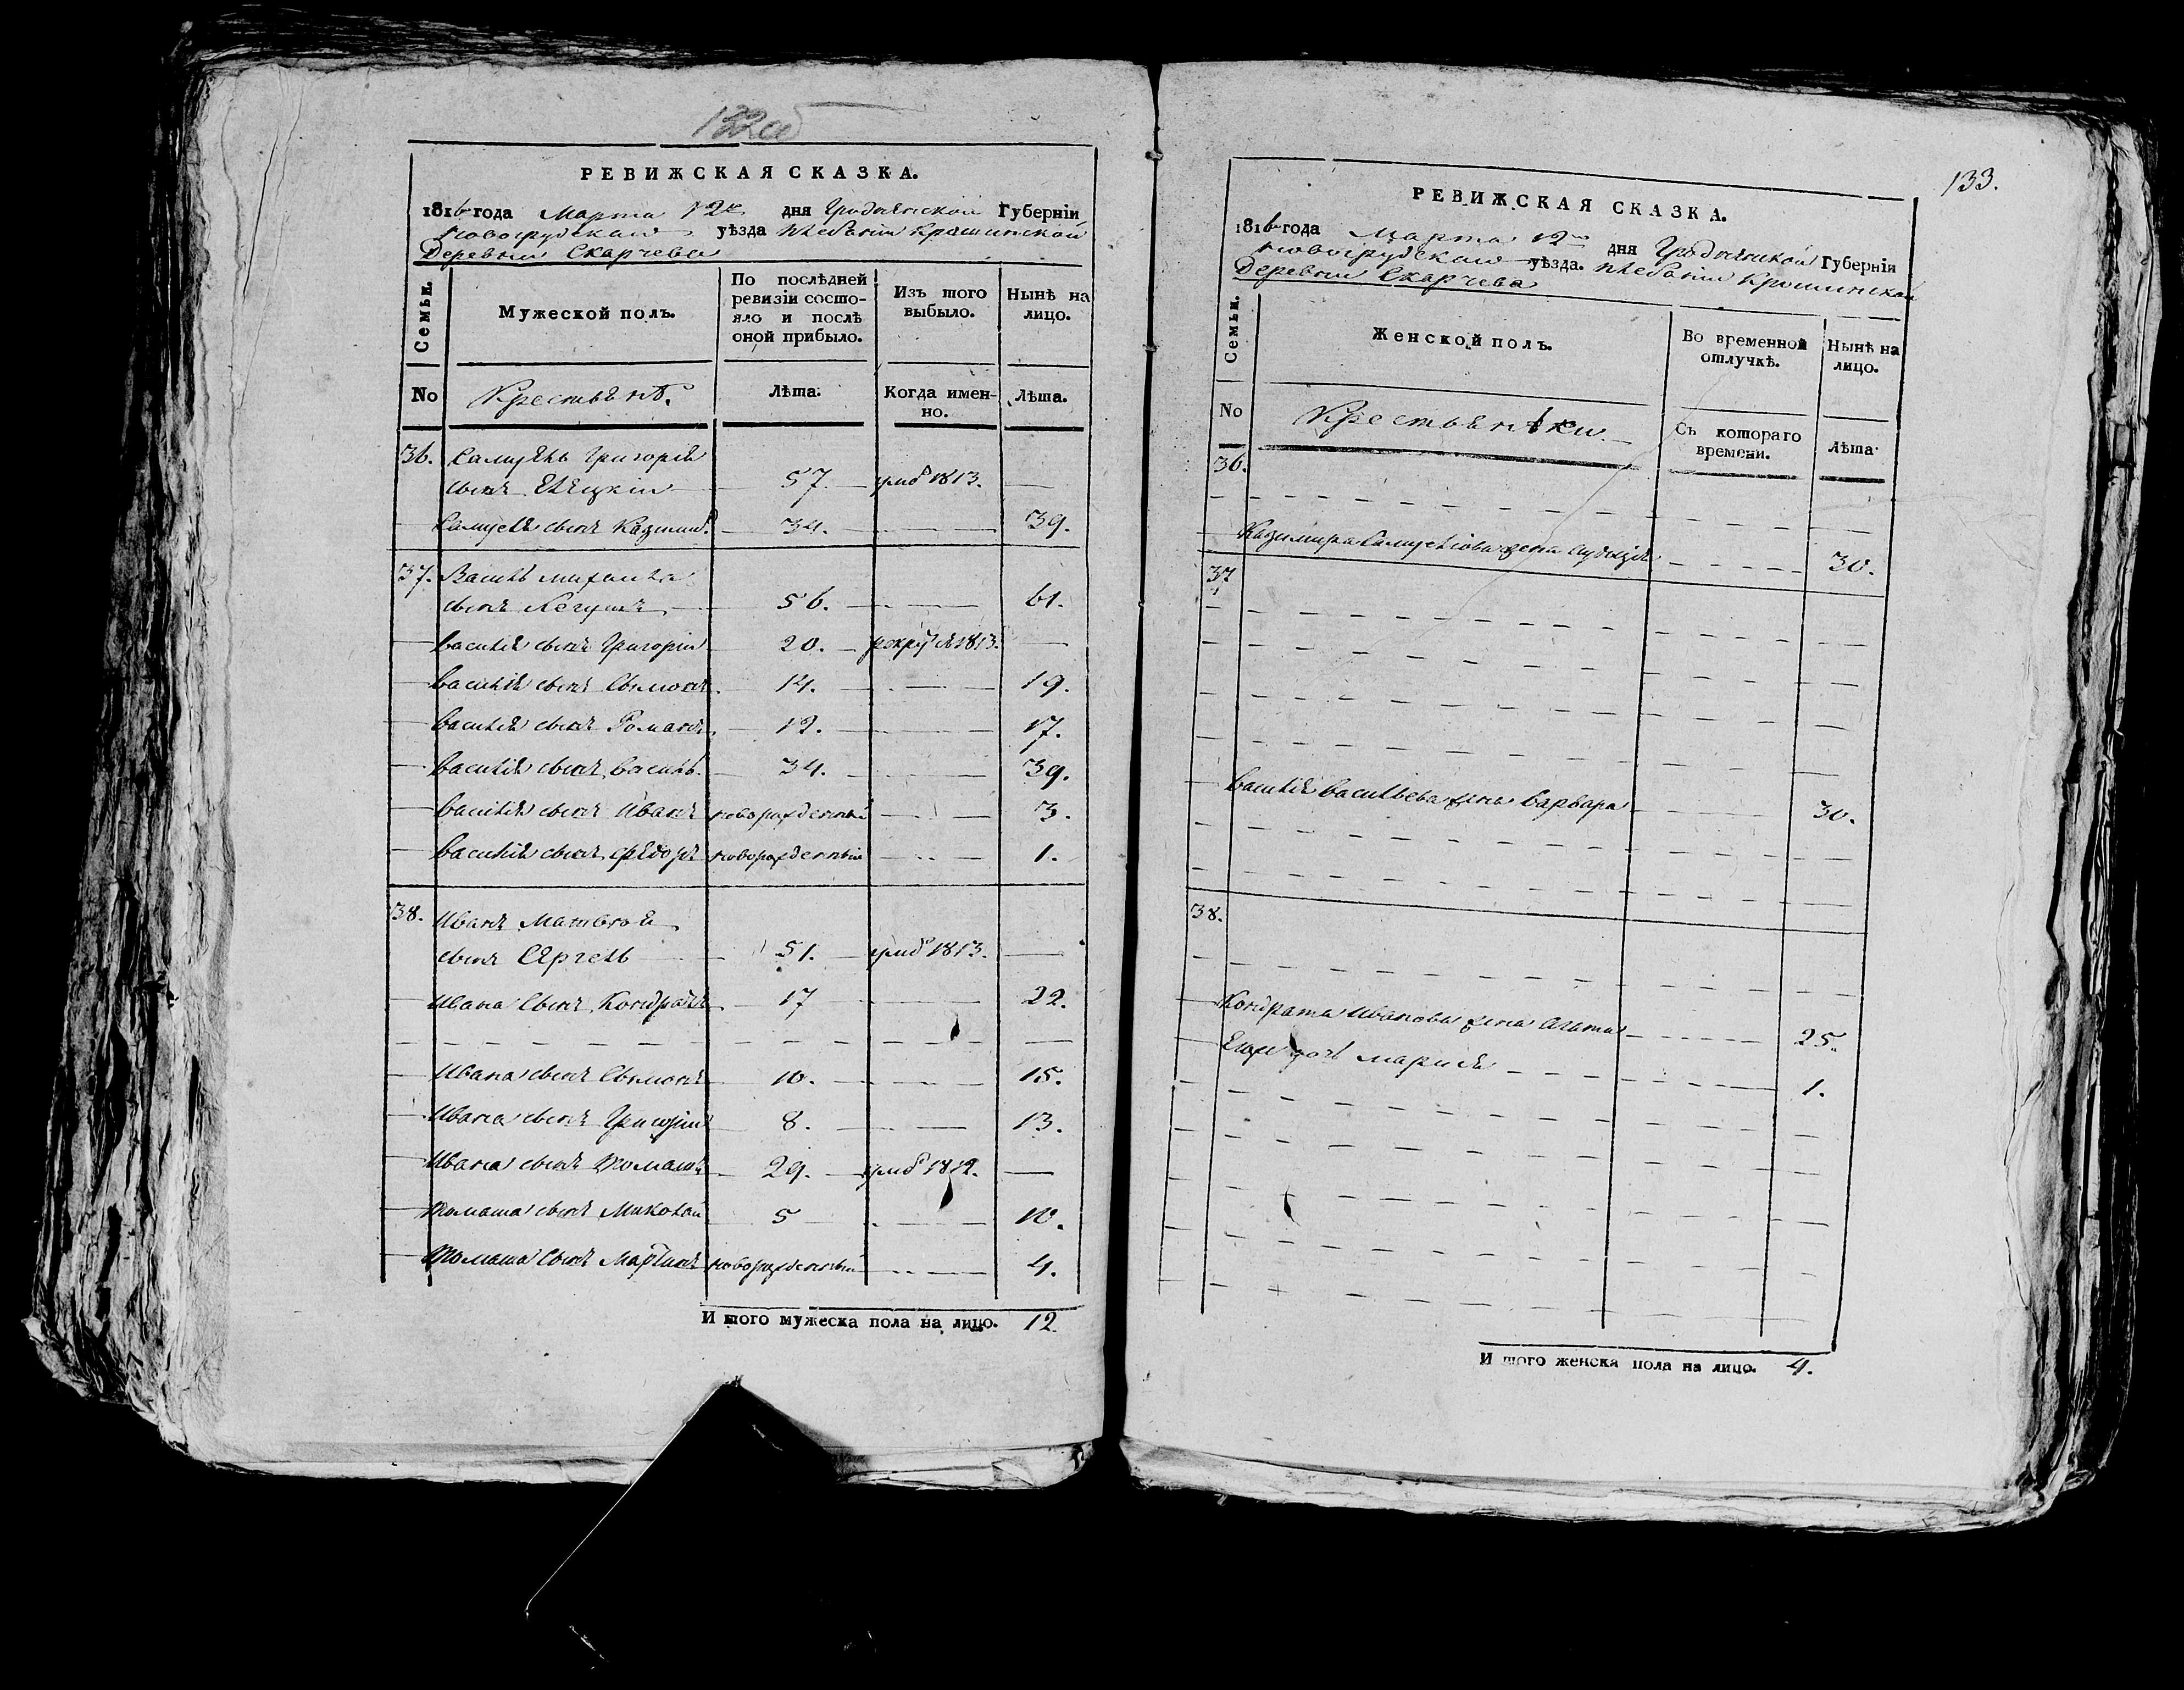 132об
РЕВИЖСКАЯ СКАЗКА.
1816 года Марта 12 дня Гродненской Губернїи
Новогрудскаго уѣзда Плебанїи Крошинской
Деревни Скарчева
Семьи.
Мужеской полъ.
По послѣдней ревизїи состояло и послѣ оной прибыло.
Изъ того выбыло.
Нынѣ на лицо.
No
Крестьянѣ.
Лѣта.
Когда именно.
Лѣта.
36. Самуѣль Григорїя
сынъ 57. умеръ 1813. —
Самуеля сынъ Казимиръ 34. — 39.
37. Василь Михаила
сынъ 56. — 61.
Василїя сынъ Григорїй 20. рекру 1813. —
Василїя сынъ Сымонъ 14. — 19.
Василїя сынъ Романъ 12. — 17.
Василїя сынъ Василь 34. — 39.
Василїя сынъ Иванъ новорожденный — 3.
Василїя сынъ Ѳедоръ новорожденный — 1.
38. Иванъ Матвея
сынъ Сяргель 51. умеръ 1813. —
Ивана Сынъ Кондратъ 17 — 22.
Ивана сынъ Сымонъ 10. — 15.
Ивана сынъ Григорїй 8. — 13.
Ивана сынъ Томашъ 29. умеръ 1812. —
Томаша сынъ Миколай 5 — 10.
Томаша Сынъ Мартинъ новорожденный — 4.
И того мужеска пола на лицо. 12.
133.
РЕВИЖСКАЯ СКАЗКА.
1816 года Марта 12 дня Гродненской Губернїи
Новогрудскаго уѣзда. Плебанїи Крошинской
Деревни Скарчева
Семьи.
Женской полъ.
Во временной отлучкѣ.
Нынѣ на лицо.
No
Крестьянѣки.
Съ котораго времени.
Лѣта.
36.
Казимира Самуелїова жена 30.
37
Василїя Васильева жена Варвара 30.
38.
Кондрата Иванова жена Агата 25.
Его дочь Марися 1.
И того женска пола на лицо. 4.